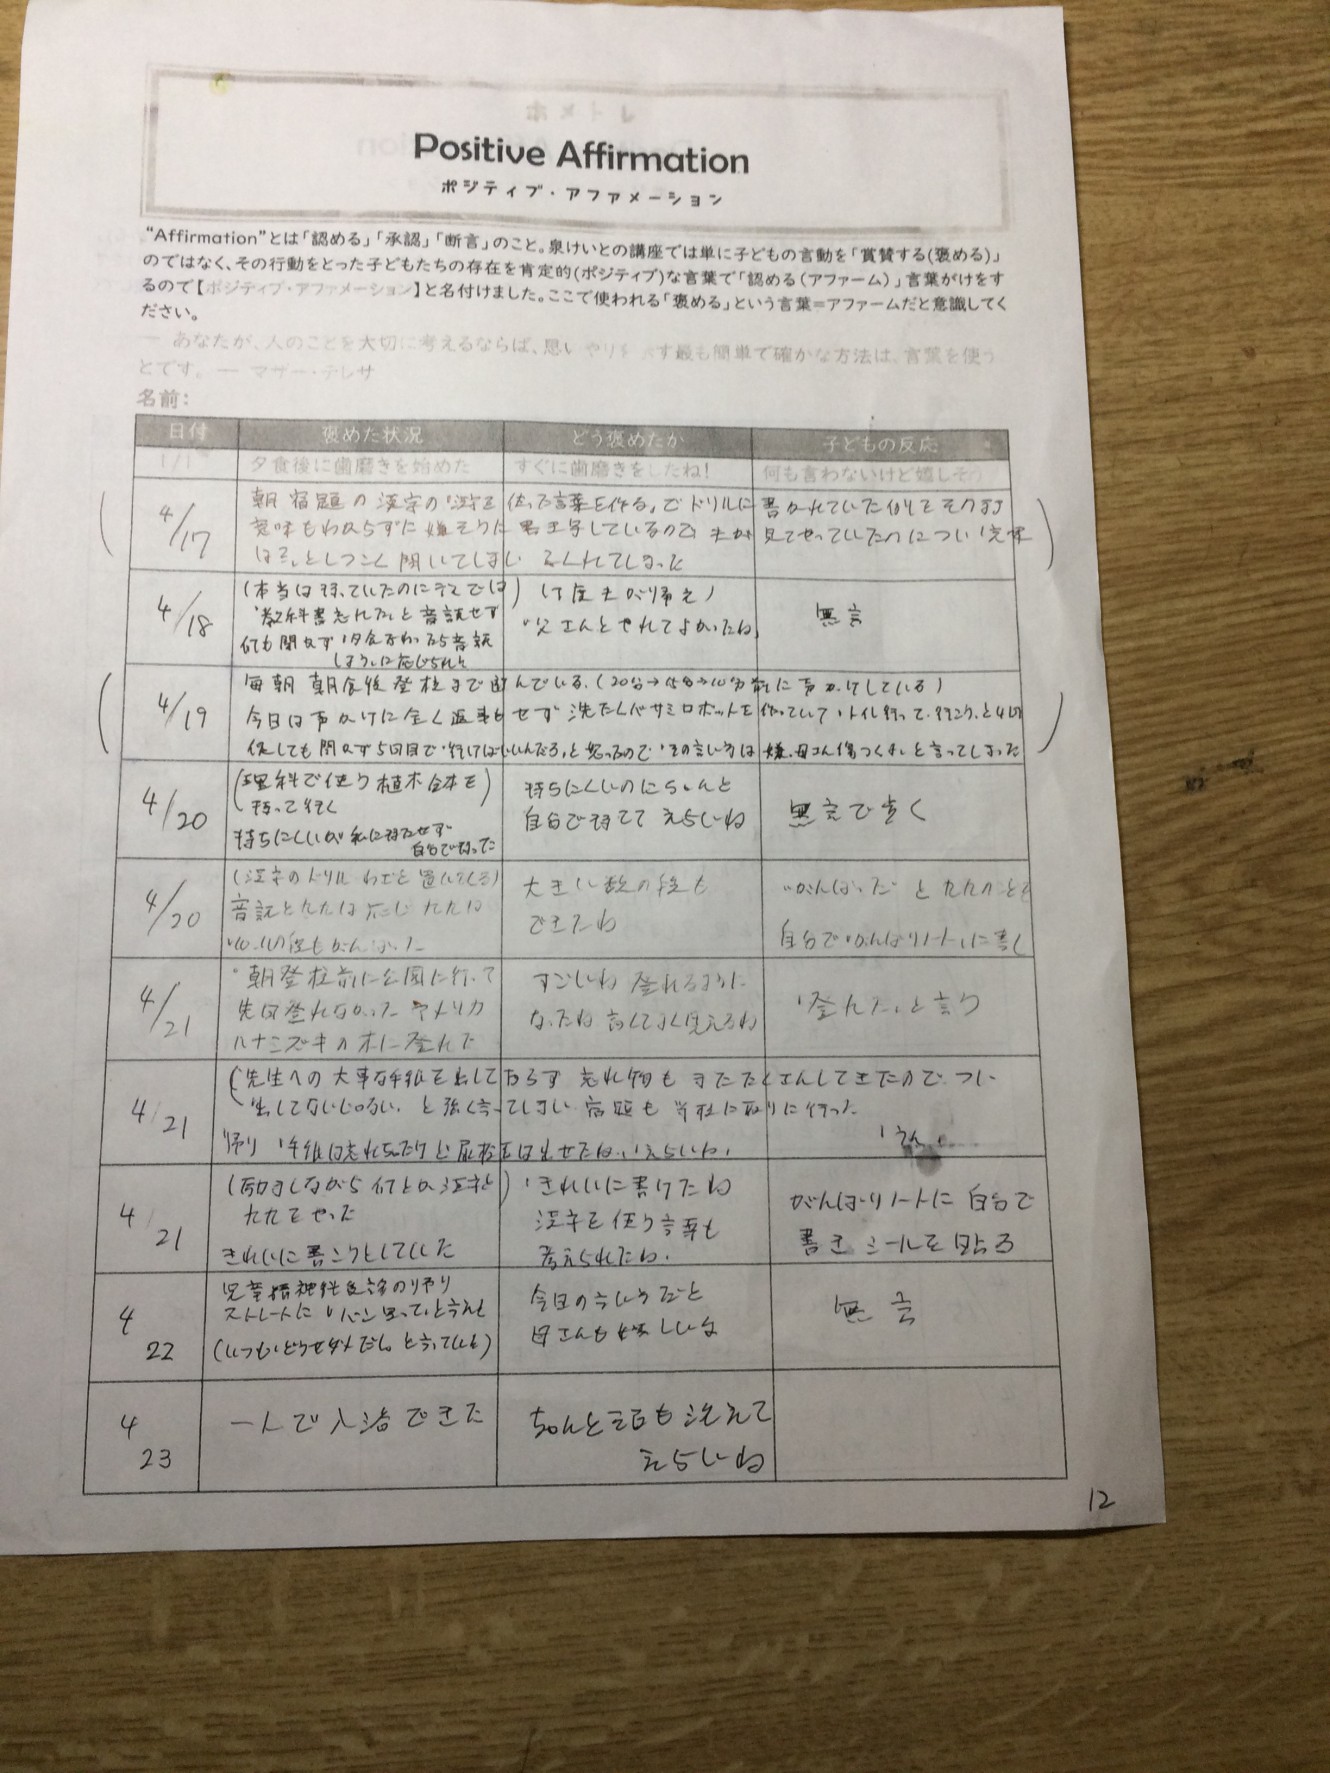 Positive Affirmation
ポジティブ・アファメーション
“Affirmation”とは「認める」「承認」「断言」のこと。泉けいとの講座では単に子どもの言動を「賞賛する(褒める)」
のではなく、その行動をとった子どもたちの存在を肯定的(ポジティブ)な言葉で「認める(アファーム)」言葉がけをす
るので【ポジティブ・アファメーション】と名付けました。ここで使われる「褒める」という言葉=アファームだと意識してく
ださい。
― あなたが、人のことを大切に考えるならば、思いやりを示す最も簡単で確かな方法は、言葉を使う
とです。 ― マザー・テレサ
名前:
日付 褒めた状況 どう褒めたか 子どもの反応
1/1 夕食後に歯磨きを始めた すぐに歯磨きをしたね! 何も言わないけど嬉しそう
4/17
朝 宿題の漢字の「漢字を使った言葉を作る」でドリルに書かれていた例をそのまま
意味もわからずに嫌そうに 見てやっていたのについ
としつこく聞いてしまい ふくれてしまった
4/18
(本当は持っていたのに
「教科書忘れた」と音読せず
何も聞かず「夕食終わったら音読
しよう」に応じられた
(丁度夫が帰る)
「父さんとやれてよかったね」
無言
4/19
毎朝 朝食後登校まで遊んでいる。(20分→15分→10分前に声かけしている)
今日は声かけに全く返事もせず 洗たくバサミロボットを作っていて「トイレ行って、行こう」と4回
促しても聞かず5回目で「行けばいいんだろ」と怒るので「その言い方は嫌、母さん傷つくわ」と言ってしまった
4/20
(理科で使う植木鉢を)
持って行く
持ちにくいが私に持たせず
自分で持った
持ちにくいのにちゃんと
自分で持てて えらいね
無言で歩く
4/20
(漢字のドリル わざと置いてくる)
音読と九九は応じ 九九は
大きい数の段も
できたね
“がんばった” と 九九のことを
自分で“がんばりノート”に書く
4/21
・朝登校前に公園に行って
先日登れなかった アメリカ
ハナミズキの木に登れた
すごいね 登れるように
なったね 高くてよく見えるね
「登れた」と言う
4/21
(先生への大事な手紙を出しておらず 忘れ物もまたたくさんしてきたので つい
出してないじゃない、と強く言ってしまい 宿題も学校に取りに行った
帰り 「手紙は忘れちゃったけど尿検査は出せたね、えらいね」
「うん」……
4/21
(励ましながら何とか漢字と)
九九をやった
きれいに書こうとしていた
「きれいに書けたね
漢字を使う言葉も
考えられたね」
がんばりノートに自分で
書き シールを貼る
4/22
児童精神科受診の帰り
ストレートに「パン買って」と言えた
(いつも「どうせダメだし」と言っていた)
今日の言い方だと
母さんも嬉しいな
無言
4/23
一人で入浴できた
ちゃんと頭も洗えて
えらいね
12